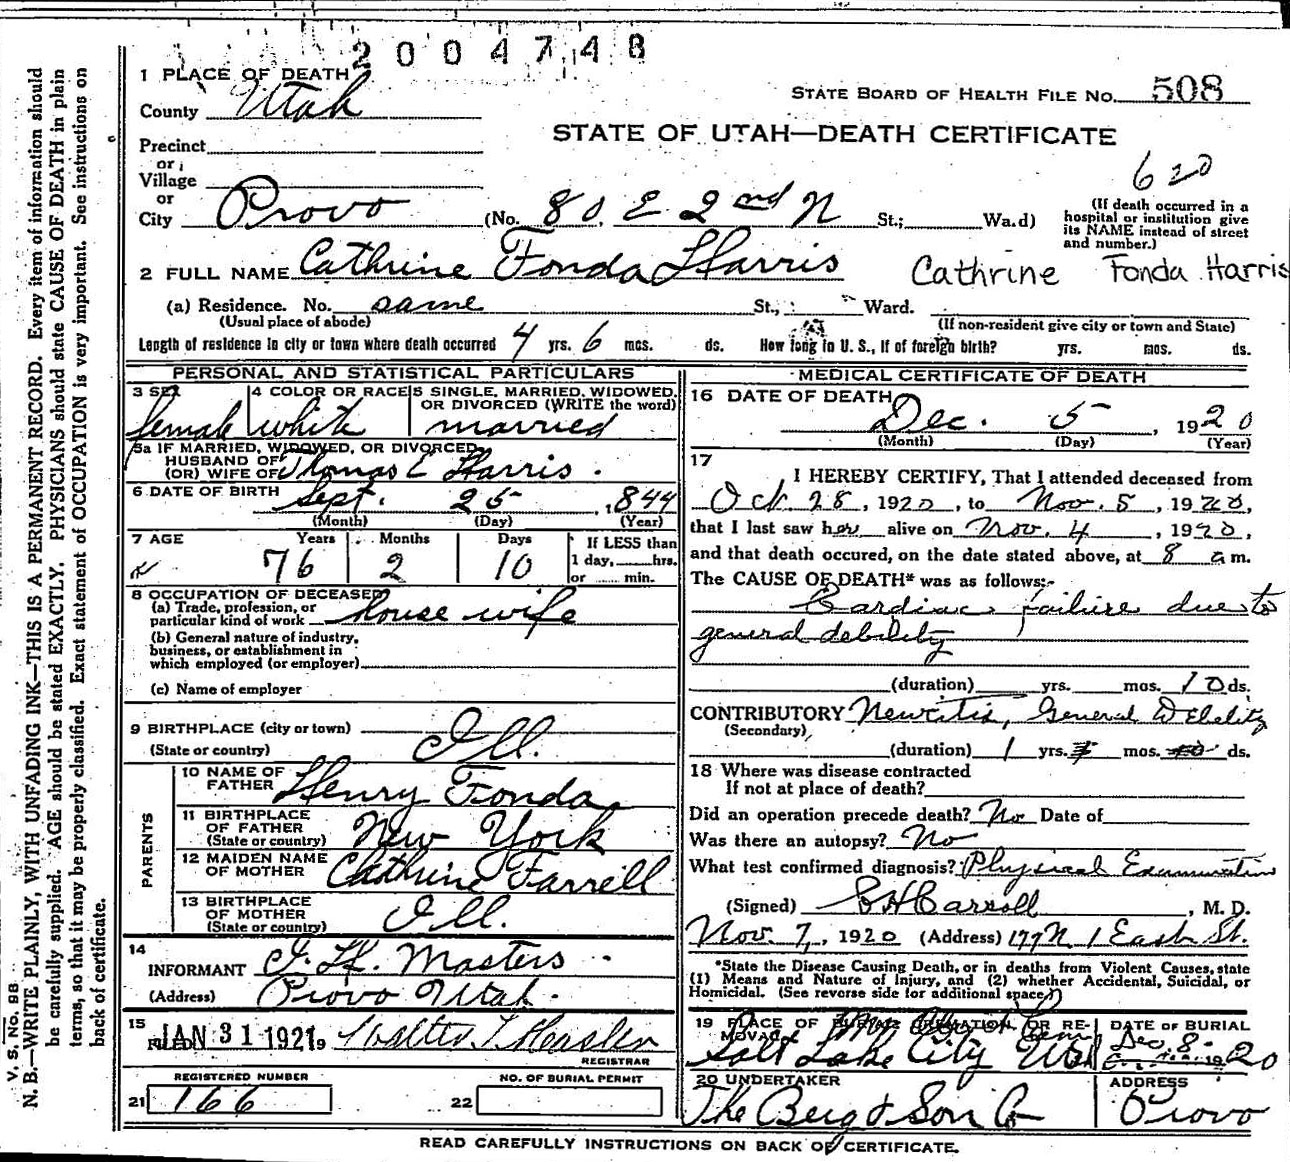 2004748
1 PLACE OF DEATH
County Utah
STATE BOARD OF HEALTH FILE NO. 508
STATE OF UTAH—DEATH CERTIFICATE
Precinct
or
Village
or
City Provo (No. 80. E 2nd N St.; Wa.d)
620
(If death occurred in a
hospital or institution give
its NAME instead of street
and number.)
2 FULL NAME Cathrine Fonda Harris
Cathrine Fonda Harris
(a) Residence. No. same St., Ward.
(Usual place of abode)
(If non-resident give city or town and State)
Length of residence in city or town where death occurred 4 yrs. 6 mos. ds. How long in U. S., if of foreign birth? yrs. mos. ds.
PERSONAL AND STATISTICAL PARTICULARS
3 SEX female
4 COLOR OR RACE white
5 SINGLE, MARRIED, WIDOWED,
OR DIVORCED (WRITE the word)
married
5a IF MARRIED, WIDOWED, OR DIVORCED
HUSBAND OF
(OR) WIFE OF Thomas E Harris.
6 DATE OF BIRTH Sept. 25, 1844
(Month) (Day) (Year)
7 AGE Years Months Days If LESS than
1 day, hrs.
or min.
76 2 10
8 OCCUPATION OF DECEASED
(a) Trade, profession, or
particular kind of work house wife
(b) General nature of industry,
business, or establishment in
which employed (or employer)
(c) Name of employer
9 BIRTHPLACE (city or town)
(State or country) Ill.
PARENTS
10 NAME OF
FATHER Henry Fonda
11 BIRTHPLACE
OF FATHER
(State or country) New York
12 MAIDEN NAME
OF MOTHER Cathrine Farrell
13 BIRTHPLACE
OF MOTHER
(State or country) Ill.
14
INFORMANT J. H. Masters.
(Address) Provo Utah.
15
FILED JAN 31 1921 19 Walter T. Hasler
REGISTRAR
REGISTERED NUMBER
21 166
NO. OF BURIAL PERMIT
22
MEDICAL CERTIFICATE OF DEATH
16 DATE OF DEATH
Dec. 5, 1920
(Month) (Day) (Year)
17
I HEREBY CERTIFY, That I attended deceased from
Oct. 28, 1920, to Nov. 5, 1920,
that I last saw her alive on Nov. 4, 1920,
and that death occured, on the date stated above, at 8 a m.
The CAUSE OF DEATH* was as follows:-
Cardiac failure due to
general debility
(duration) yrs. mos. 10 ds.
CONTRIBUTORY Neuritis, General Debility
(Secondary)
(duration) 1 yrs. mos. ds.
18 Where was disease contracted
If not at place of death?
Did an operation precede death? No Date of
Was there an autopsy? No
What test confirmed diagnosis? Physical Examination
(Signed) Carroll, M. D.
Nov. 7, 1920 (Address) 177 N. 1 East St.
*State the Disease Causing Death, or in deaths from Violent Causes, state
(1) Means and Nature of Injury, and (2) whether Accidental, Suicidal, or
Homicidal. (See reverse side for additional space.)
19 PLACE OF BURIAL, CREMATION, OR RE-
MOVAL
Salt Lake City Utah
DATE OF BURIAL
Dec. 8- 1920
20 UNDERTAKER
The Berg & Son Co
ADDRESS
Provo
READ CAREFULLY INSTRUCTIONS ON BACK OF CERTIFICATE.
V. S. No. 98
N. B.—WRITE PLAINLY, WITH UNFADING INK—THIS IS A PERMANENT RECORD. Every item of information should
be carefully supplied. AGE should be stated EXACTLY. PHYSICIANS should state CAUSE OF DEATH in plain
terms, so that it may be properly classified. Exact statement of OCCUPATION is very important. See instructions on
back of certificate.